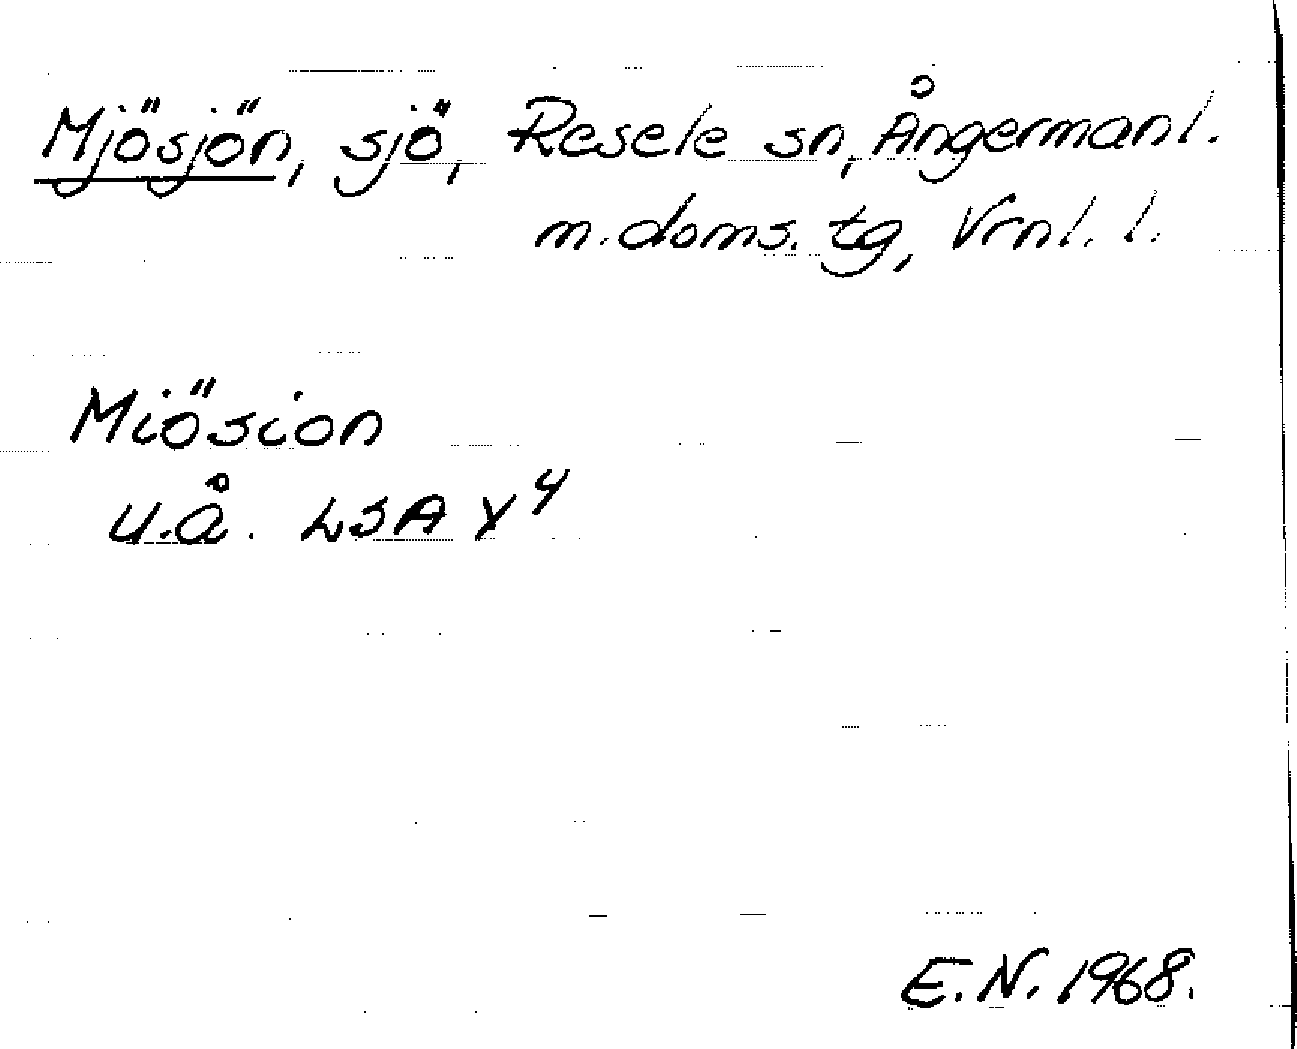 Mjösjön, sjö, Resele sn, Ångermanl.
m. doms. tg, Vrnl. l.
Miösion
u.å. LSA Y 4
E.N. 1968.